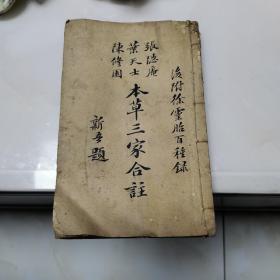 後附徐靈胎百種録
張隱庵
葉天士
陳修園
本草三家合註
新吾題